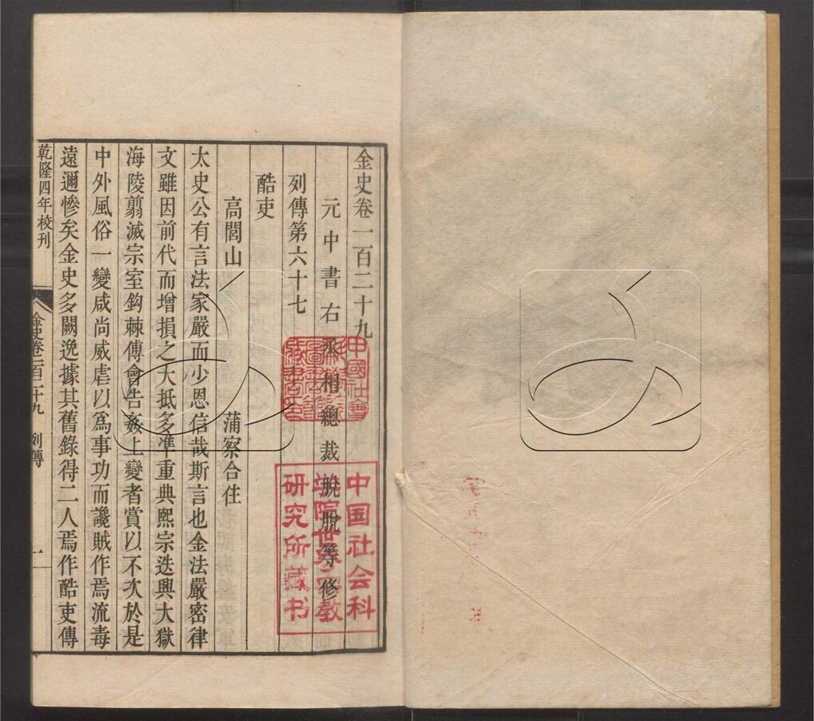 金史卷一百二十九
元中書右丞相總裁脫脫等修
列傳第六十七
酷吏
高閭山 蒲察合住
太史公有言法家嚴而少恩信哉斯言也金法嚴密律
文雖因前代而增損之大抵多準重典熙宗迭興大獄
海陵翦滅宗室鈎棘傅會告姦上變者賞以不次於是
中外風俗一變咸尚威虐以爲事功而讒賊作焉流毒
遠邇慘矣金史多闕逸據其舊錄得二人焉作酷吏傳
乾隆四年校刊
金史卷一百二十九 列傳 一
中国社会科
学院世界宗教
研究所藏书